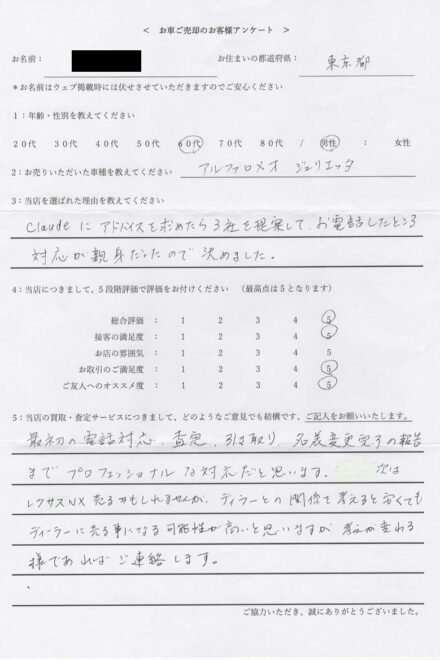 < お車ご売却のお客様アンケート >
お名前： お住まいの都道府県： 東京都
*お名前はウェブ掲載時には伏せさせていただきますのでご安心ください
1：年齢・性別を教えてください
20代 30代 40代 50代 60代 70代 80代 / 男性 ： 女性
2：お売りいただいた車種を教えてください アルファロメオ ジュリエッタ
3：当店を選ばれた理由を教えてください
Claudeにアドバイスを求めたら3社を提案して、お電話したところ
対応が親身だったので決めました。
4：当店につきまして、5段階評価で評価をお付けください （最高点は5となります）
総合評価 ： 1 2 3 4 5
接客の満足度 ： 1 2 3 4 5
お店の雰囲気 ： 1 2 3 4 5
お取引のご満足度 ： 1 2 3 4 5
ご友人へのオススメ度 ： 1 2 3 4 5
5：当店の買取・査定サービスにつきまして、どのようなご意見でも結構です、ご記入をお願いいたします。
最初の電話対応、査定、引き取り、名義変更完了の報告
までプロフェッショナルな対応だと思います。 次は
レクサスNX売るかもしれませんが、ディーラーとの関係を考えると安くても
ディーラーに売る事になる可能性が高いと思いますが考えが変わる
様であればご連絡します。
ご協力いただき、誠にありがとうございました。